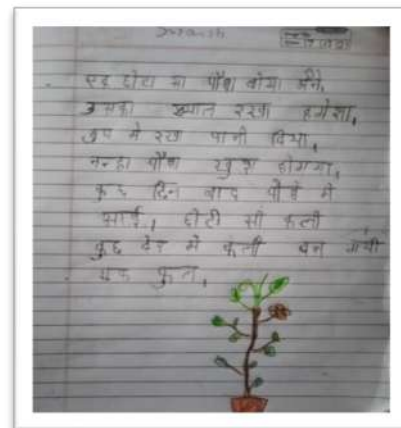 एक छोटा सा पौधा बोया मैंने,
उसका ख्याल रखा हमेशा,
धुप मे रखा पानी दिया,
नन्हा पौधा खुश होगया,
कुछ दिन बाद पौधे मे
आई, छोटी सी कली
कुछ देर मे कली बन गयी
एक फुल,